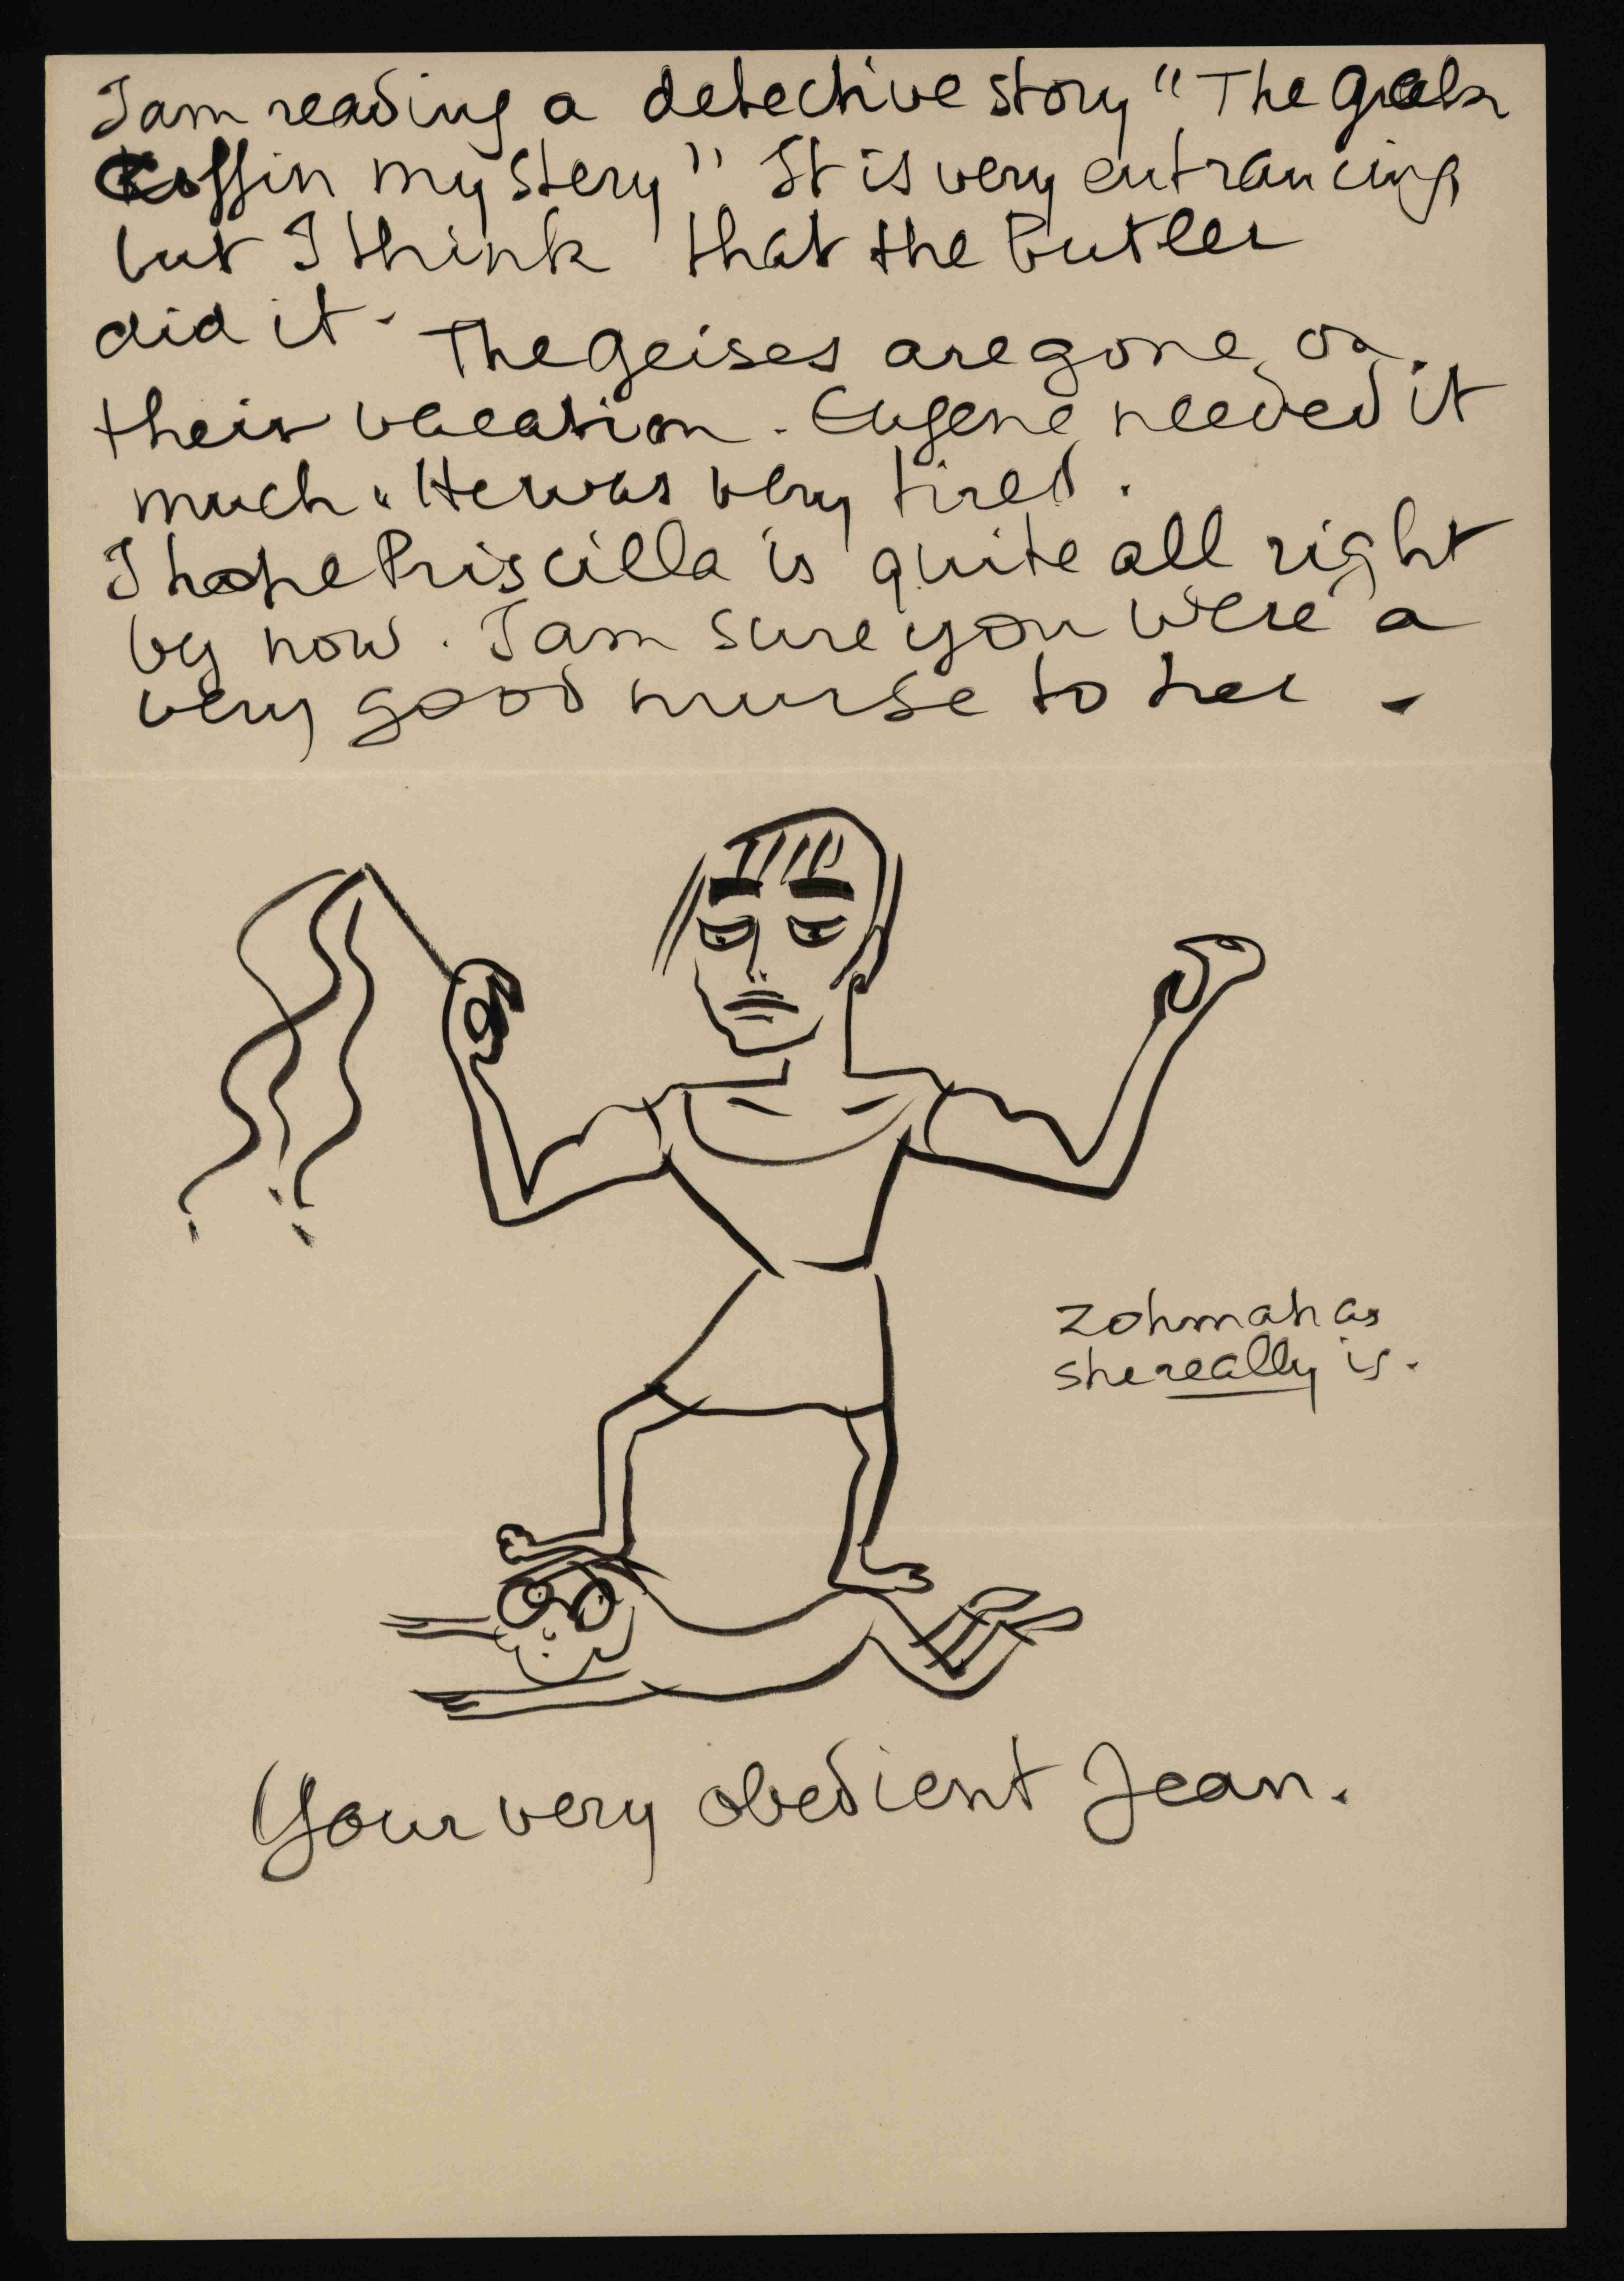 I am reading a detective story "The greek
Coffin mystery" It is very entrancing
but I think that the butler
did it. The Geises are gone on
their vacation. Eugene needed it
much. He was very tired.
I hope Priscilla is quite all right
by now. I am sure you were a
very good nurse to her.
Zohmah as
she really is.
Your very obedient Jean.